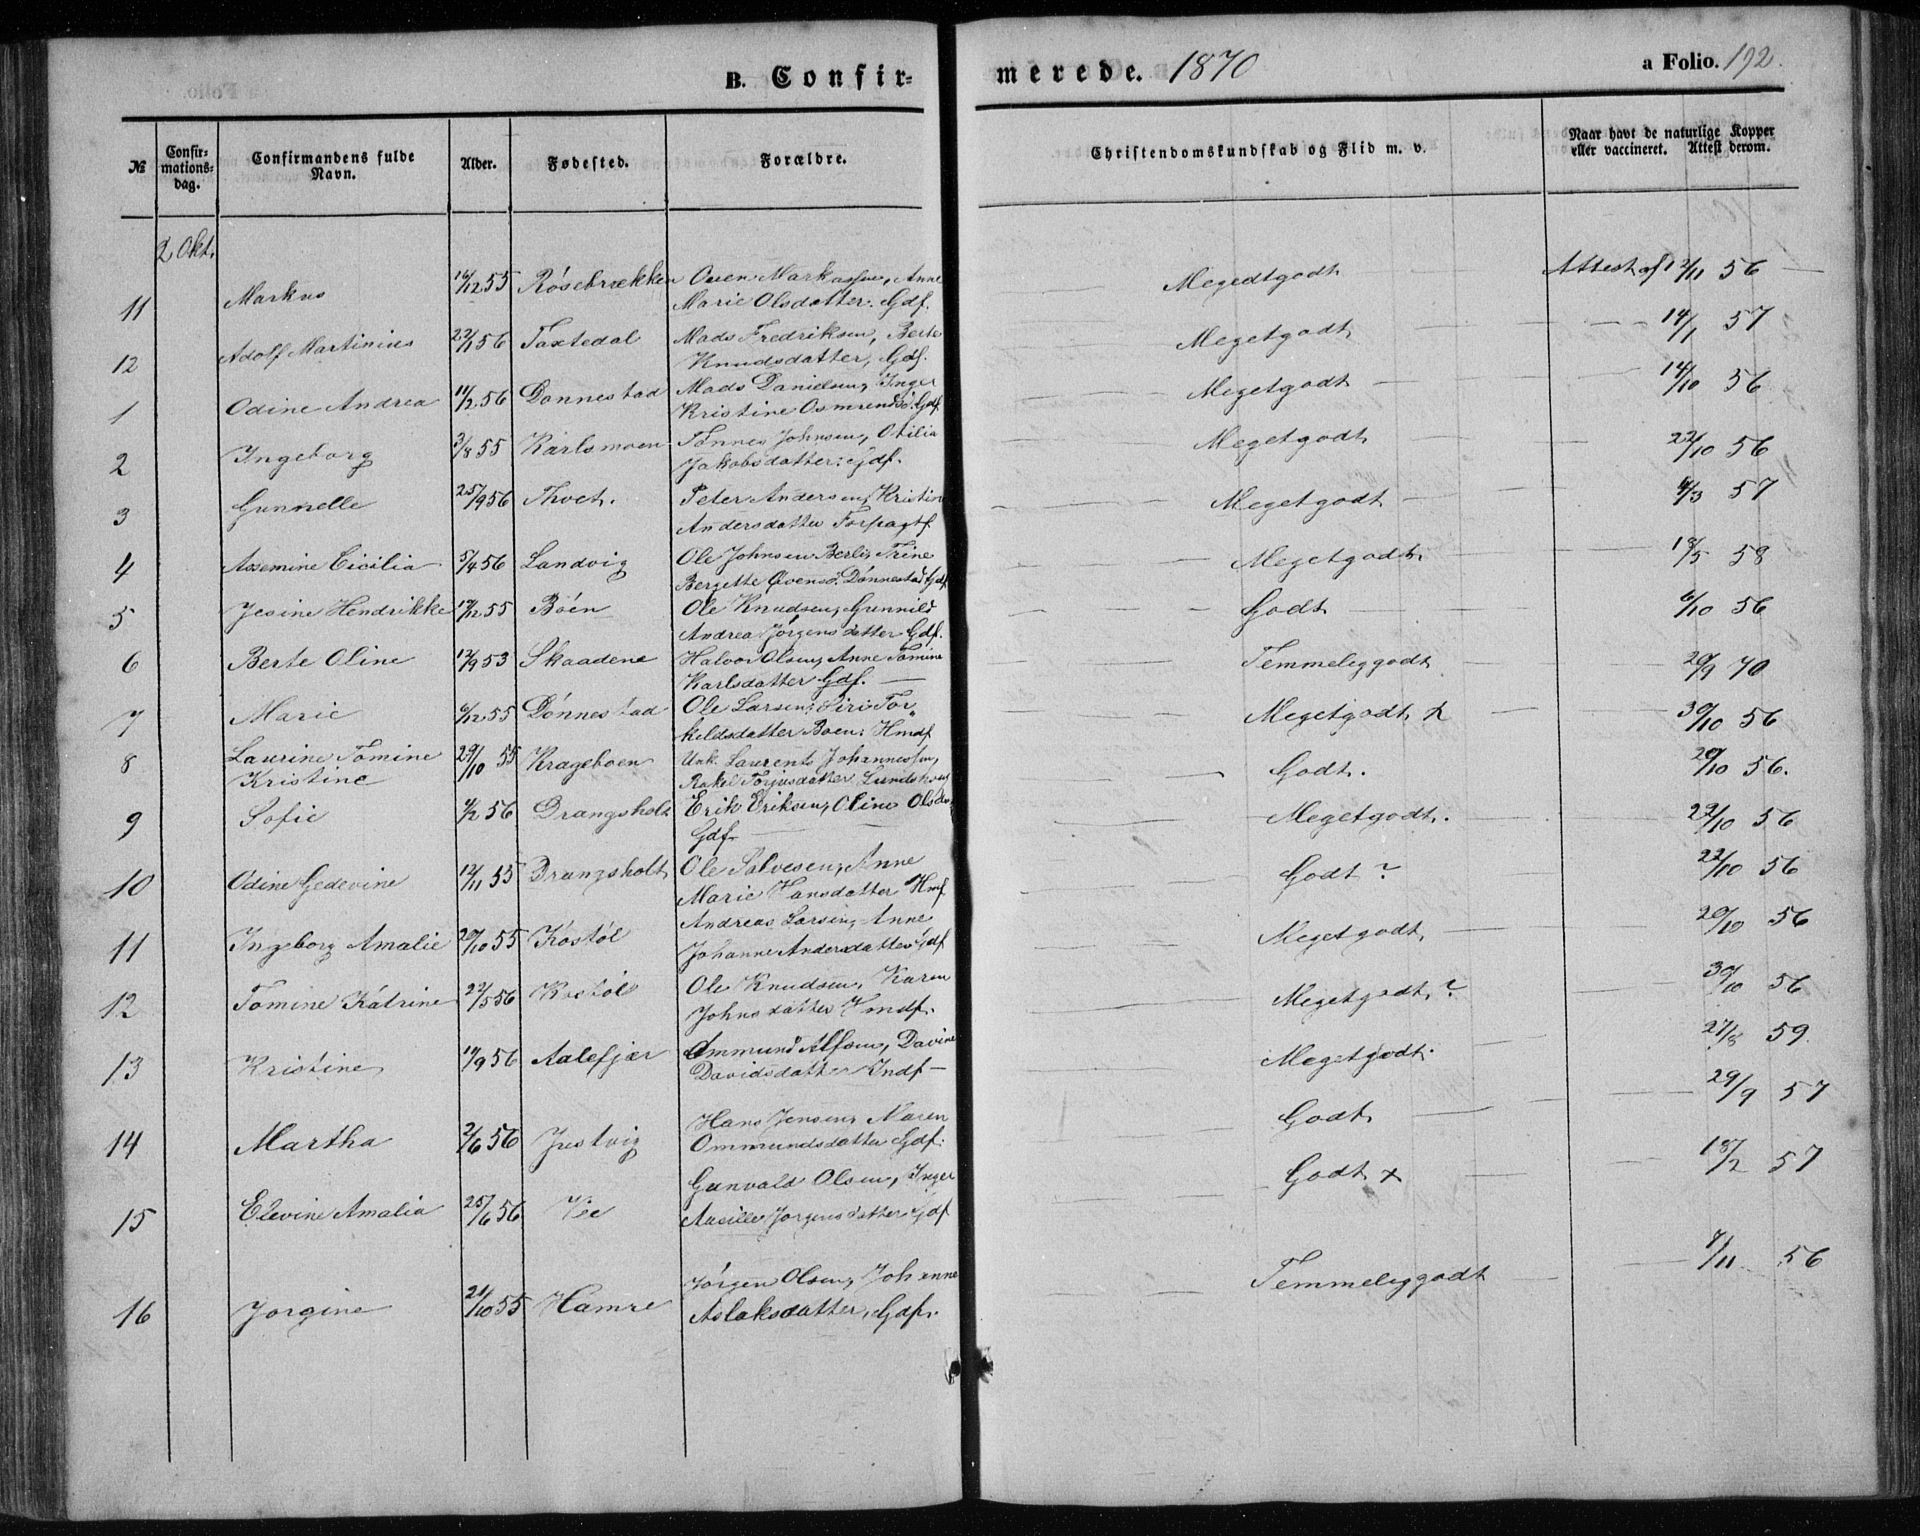 B. Confir- merede. 1870 a Folio. 192.
№ Confir-mations-dag. Confirmandens fulde Navn. Alder. Fødested. Forældre. Christendomskundskab og Flid m. v. Naar havt de naturlige Kopper eller vaccineret. Attest derom.
2 Okt.
11 Markus 16/12 55 Røsebrækken Ouen Markussen, Anne Megedtgodt Attest af 12/11 56
Marie Olsdatter. Gdf.
12 Adolf Martinius 22/1 56 Taxtedal Mads Fredriksen, Berte Megetgodt 14/1 57
Knudsdatter, Gdf.
1 Odine Andrea 11/2 56 Donnestad Mads Danielsen, Inger Megetgodt 14/10 56
Kristine Osmundsd. Gdf.
2 Ingeborg 3/8 55 Karlsmoen Tønnes Johnsen, Otilia Megetgodt 22/10 56
Jakobsdatter. Gdf.
3 Gunnelle 25/9 56 Thvet. Peter Andersen, Kristin Megetgodt 4/3 57
Andersdatter Forpagtf.
4 Assemine Cicilia 5/4 56 Landvig Ole Johnsen Berli, Trine Megetgodt 18/5 58
Bergette Øvensd. Dønnestad Gdf
5 Jesine Hendrikke 19/12 55 Boén Ole Knudsen, Gunnild Godt 6/10 56
Andrea Jørgensdatter Gdf.
6 Berte Oline 12/9 53 Skaadene Halvor Olsen, Anne Tomine Temmeliggodt 20/9 70
Karlsdatter Gdf.
7 Marie 6/12 55 Dønnestad Ole Larsen, Siri Tor- Megetgodt x 30/10 56
keldsdatter Boen. Hmdf
8 Laurine Tomine 29/10 55 Krageboen Unk. Laurents Johannessen, Godt. 20/10 56.
Kristine Rakel Torjusdatter
9 Sofie 4/2 56 Drangsholt Erik Eriksen, Oline Olsd. Megetgodt. 22/10 56
Gdf
10 Odine Gedevine 12/11 55 Drangsholt Ole Salvesen, Anne Godt ? 22/10 56
Marie Hansdatter Hmf
11 Ingeborg Amalie 20/10 55 Kostøl Andreas Larsen, Anne Megetgodt, 20/10 56
Johanne Andersdatter Gdf
12 Tomine Katrine 22/5 56 Kostøl Ole Knudsen, Karen Megetgodt, ? 30/10 56
Johnsdatter Hmdf.
13 Kristine 19/9 56 Aalefjær Ommund Alfsen, Davine Megetgodt. 27/8 59.
Davidsdatter Indf
14 Martha 2/6 56 Justvig Hans Jensen, Maren Godt 29/9 57
Ommundsdatter Gdf.
15 Elevine Amalia 25/6 56 Vee Gunvald Olsen, Inger Godt x 18/2 57
Jørgensdatter Gdf
16 Jorgine 24/10 55 Hamre Jørgen Olsen, Johanne Temmeliggodt 7/11 56
Aslaksdatter, Gdf.